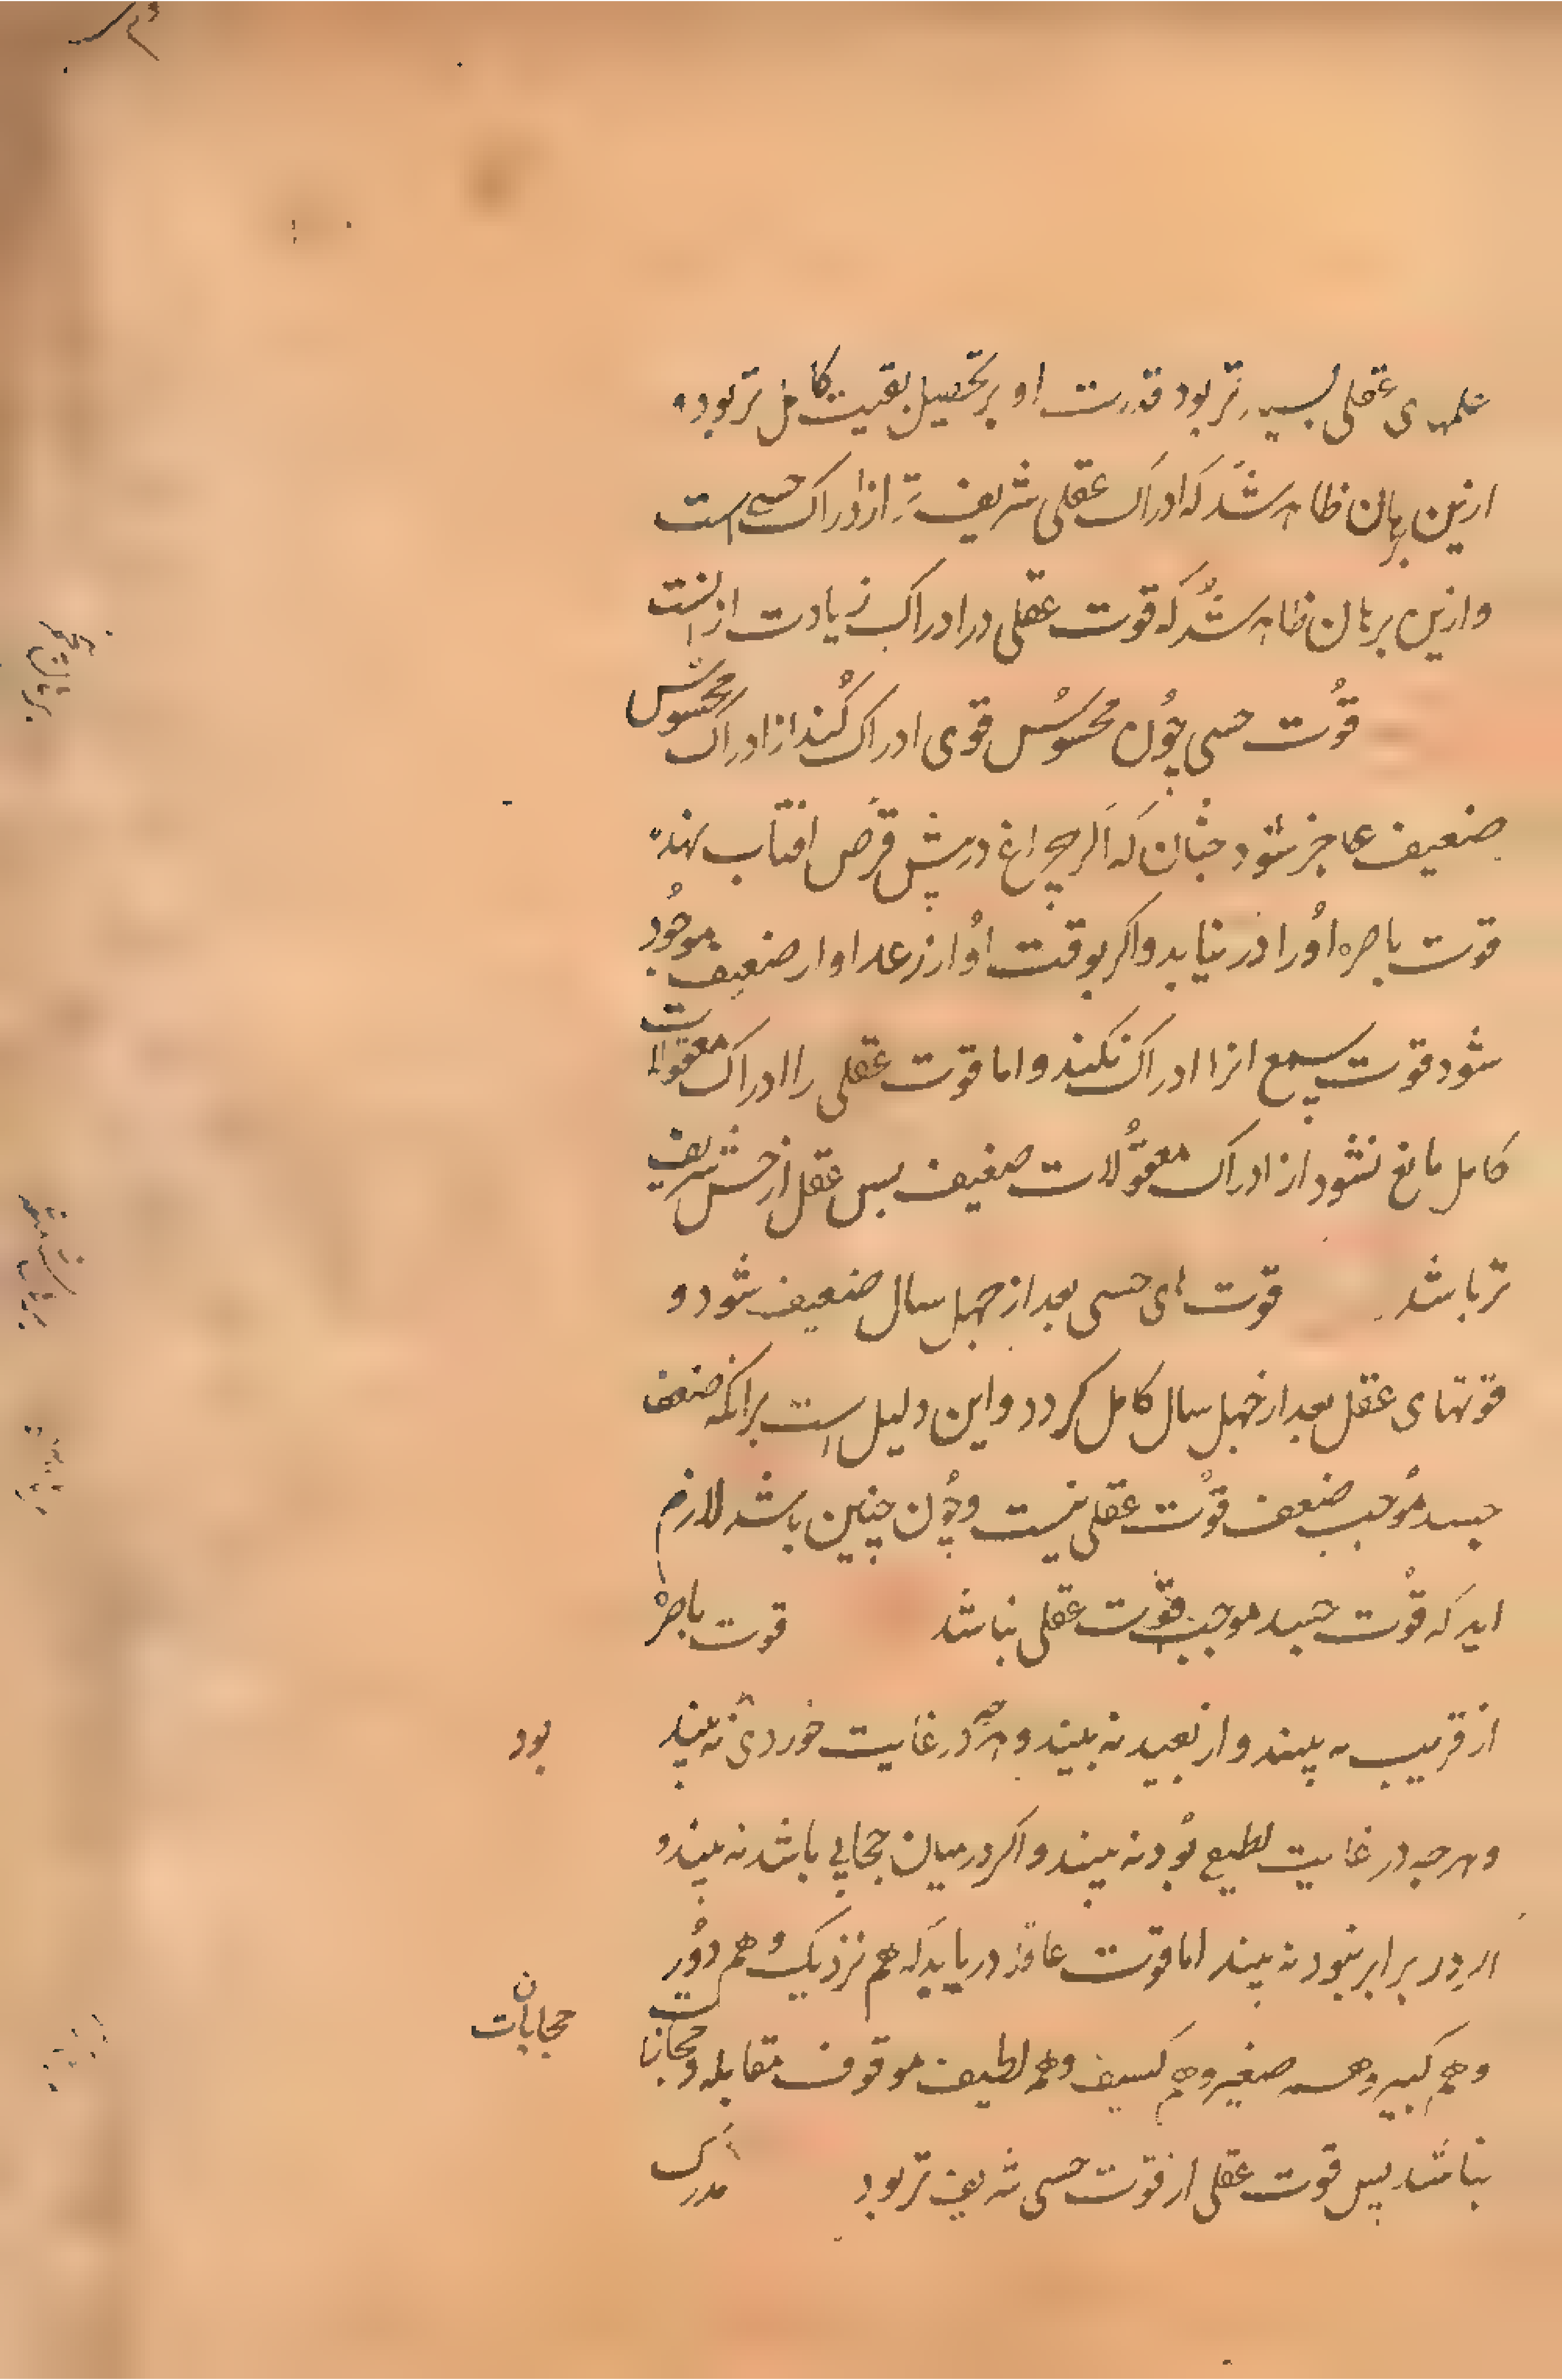 علمهای عقلی بسیارتر بود قدرت او بر تحصیل بقیت کامل تر بود و
ازین برهان ظاهر شد که ادراک عقلی شریف تر از ادراک حسی است
وازین برهان ظاهر شد که قوت عقلی در ادراک زیادت از انست
قوت حسی چون محسوس قوی ادراک کند از ادراک محسوس
ضعیف عاجز شود چنان که اگر چراغ در پیش قرص افتاب نهند
قوت باصره اورا در نیابد واکر بوقت اواز رعد اواز ضعیف موجود
شود قوت سمع انرا ادراک نکند و اما قوت عقلی را ادراک معقولات
کامل مانع نشود از ادراک معقولات ضعیف پس عقل از حس شریف
تر باشد قوت های حسی بعد از چهل سال ضعیف شود و
قوتهای عقل بعد از چهل سال کامل کردد و این دلیل است برانکه ضعف
جسد موجب ضعف قوت عقلی نیست و چون چنین باشد لازم
اید که قوت جسد موجب قوت عقلی نباشد قوت باصره
از قریب به بیند و از بعید نه بیند و هرچه در غایت خوردی نه بیند
بود
و هرچه در غایت لطیع بود نه بیند و اکر در میان حجابی باشد نه بیند و
اکر در برابر نبود نه بیند اما قوت عاقله دریابد که هم نزدیک و هم دور
و هم کبیر و هم صغیر و هم کسیف و هم لطیف موقوف مقابله و حجابات
حجابان
حجابات
نباشد پس قوت عقلی از قوت حسی شریف تر بود
مدرک